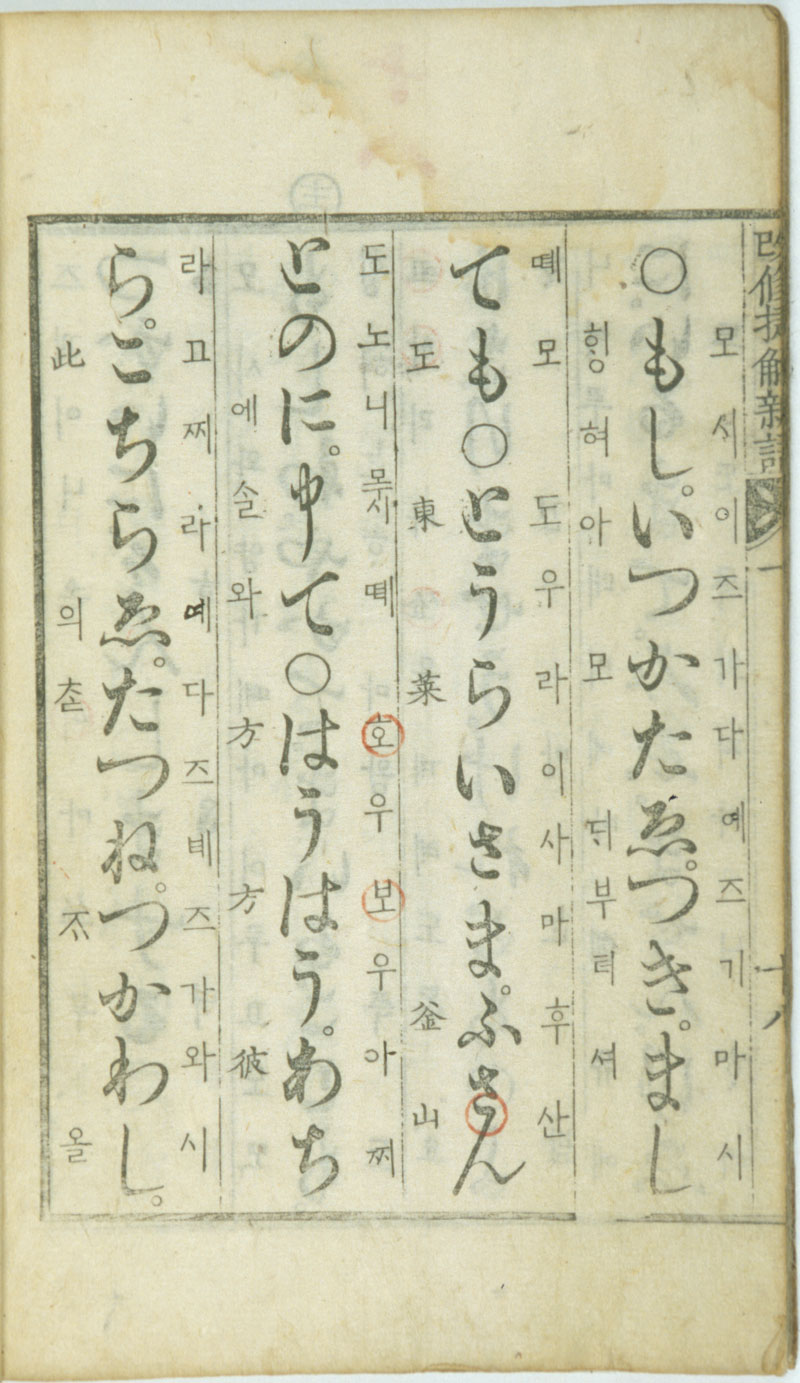 改修捷解新語 一 十八
모시이즈가다예즈기마시
○もし。いつかたゑ。つき。まし
힝혀아모ᄃᆡ부티셔
뗴모도우라이사마후산
ても○とうらいさま。ふさん
도東萊釜山
도노니뗴호우보우아찌
とのに。申て○はうはう。あち
에와솔와方方彼
라고찌라예다즈녜즈가와시
ら。こちらゑ。たつね。つかわし。
此의올